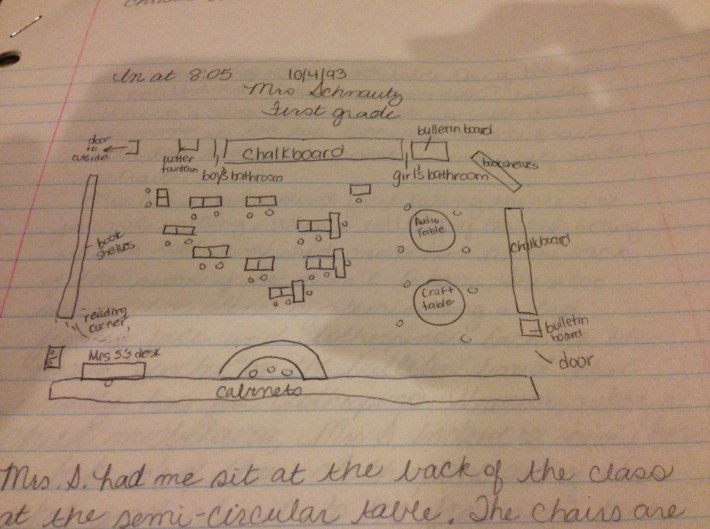 In at 8:05
10/4/93
Mrs Schrautz
First grade
door to outside
boy's bathroom
chalkboard
girl's bathroom
bulletin board
bookshelves
book shelves
Audio table
chalkboard
Craft table
reading corner
bulletin board
door
Mrs S.'s desk
cabinets
Mrs. S. had me sit at the back of the class
at the semi-circular table. The chairs are